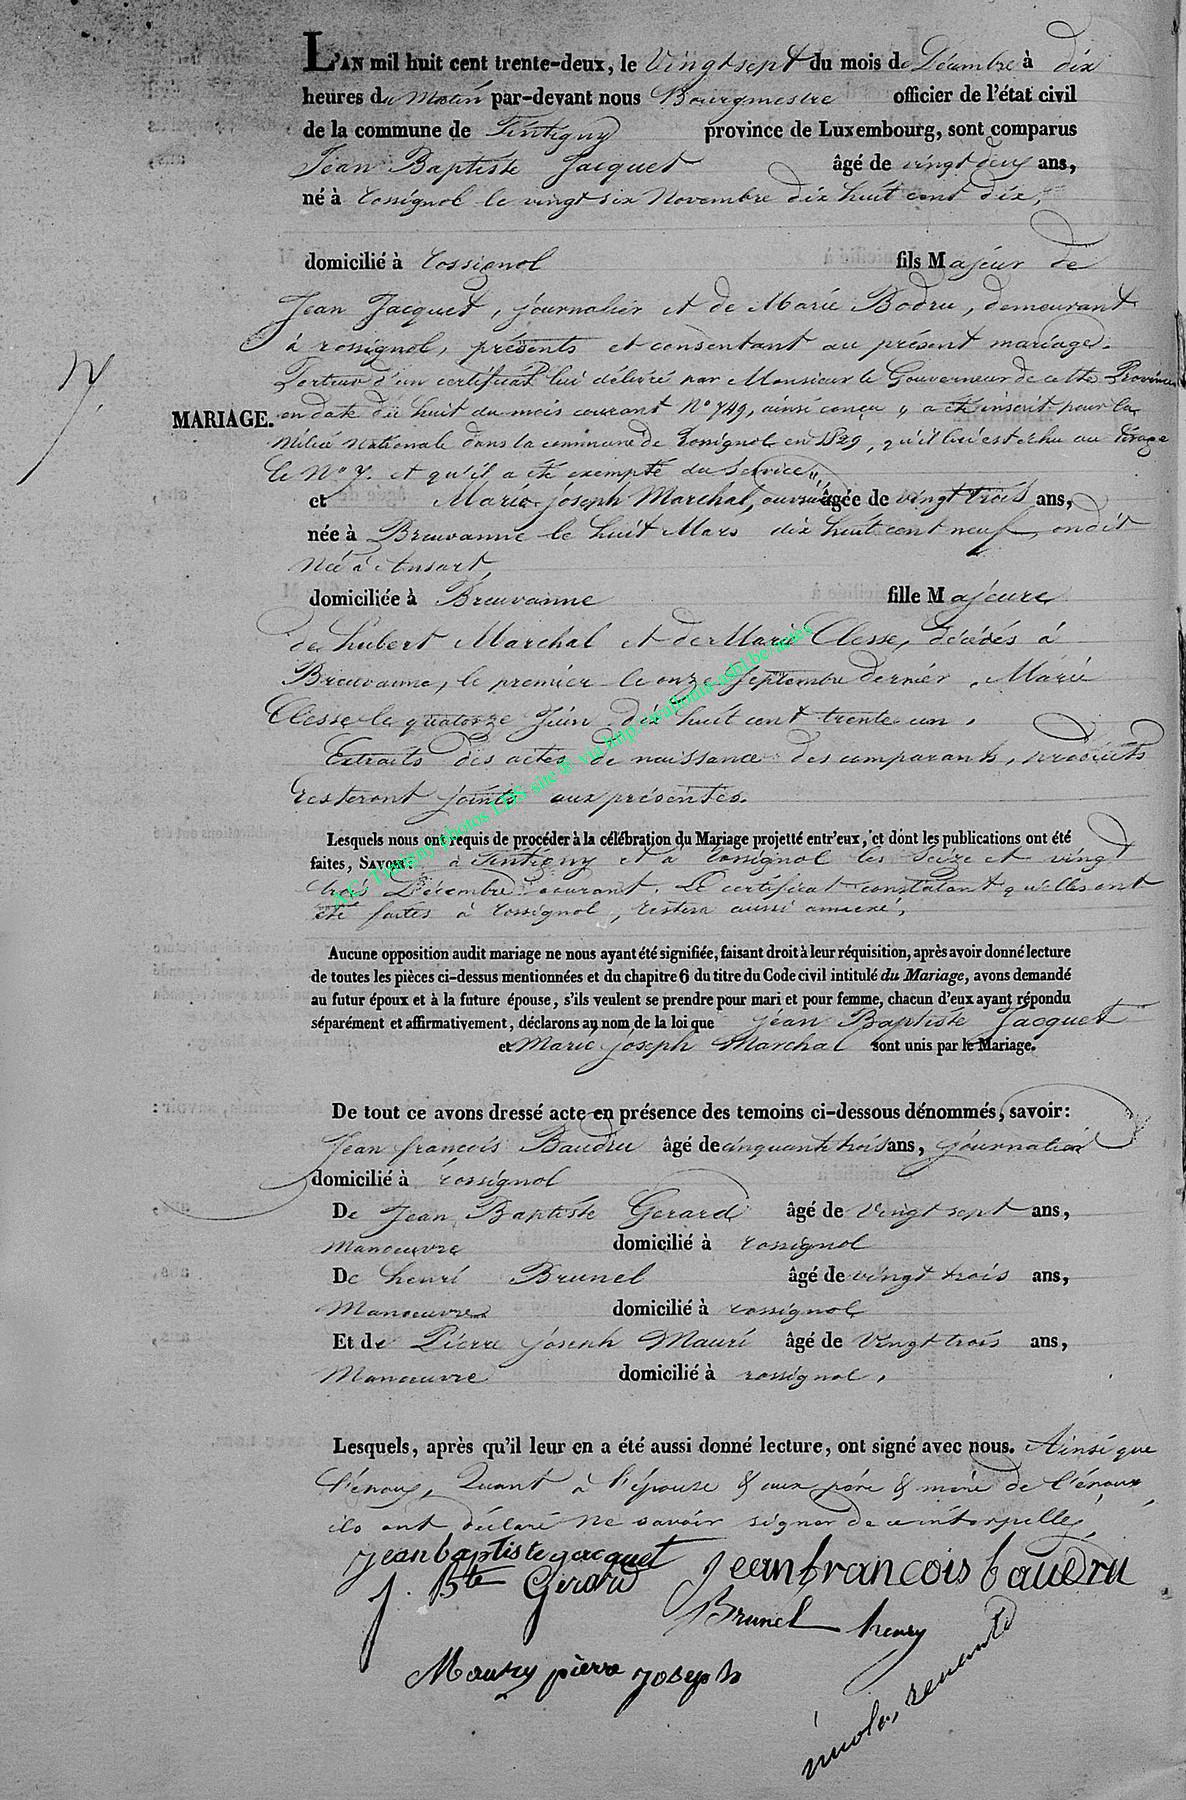 L'AN mil huit cent trente-deux, le Vingt sept du mois de Décembre à dix
heures du Matin par-devant nous Bourgmestre officier de l'état civil
de la commune de Tintigny province de Luxembourg, sont comparus
Jean Baptiste Jacquet âgé de vingt deux ans,
né à rossignol le vingt six Novembre dix huit cent dix,
domicilié à rossignol fils Majeur de
Jean Jacquet, journalier et de Marie Bodru, demeurant
à rossignol, présents et consentant au présent mariage.
Porteur d'un certificat lui délivré par Monsieur le Gouverneur de cette Province
en date dix huit du mois courant N° 749, ainsi conçu " a été inscrit pour la
MARIAGE.
Milice Nationale dans la commune de Rossignol en 1829, qu'il lui est echu au tirage
le N° 7. et qu'il a été exempté du service",
et Marie Joseph Marchal, ouvrière âgée de vingt trois ans,
née à Breuvanne le huit Mars dix huit cent neuf, on dit
Née à Ansart,
domiciliée à Breuvanne fille Majeure
de hubert Marchal et de Marie Clesse, décédés à
Breuvanne, le premier le onze Septembre dernier, Marie
Clesse le quatorze Juin dix huit cent trente un.
Extraits des actes de naissance des comparants, produits
resteront joints aux présentes.
AE Tintigny photos LDS site ® via http://wallonia-asbl.be/actes
Lesquels nous ont requis de procéder à la célébration du Mariage projetté entr'eux, et dont les publications ont été
faites, SAVOIR: à Tintigny et à rossignol les seize et vingt
trois Décembre courant. Le certificat constatant qu'elles ont
été faites à rossignol, restera aussi annexé,
Aucune opposition audit mariage ne nous ayant été signifiée, faisant droit à leur réquisition, après avoir donné lecture
de toutes les pièces ci-dessus mentionnées et du chapitre 6 du titre du Code civil intitulé du Mariage, avons demandé
au futur époux et à la future épouse, s'ils veulent se prendre pour mari et pour femme, chacun d'eux ayant répondu
séparément et affirmativement, déclarons au nom de la loi que jean Baptiste Jacquet
et Marie joseph Marchal sont unis par le Mariage.
De tout ce avons dressé acte en présence des temoins ci-dessous dénommés, savoir:
Jean françois Baudru âgé de cinquante trois ans, journalier
domicilié à rossignol
De Jean Baptiste Gerard âgé de Vingt sept ans,
Manoeuvre domicilié à rossignol
De henri Brunel âgé de vingt trois ans,
Manoeuvre domicilié à rossignol
Et de Pierre joseph Mauri âgé de Vingt trois ans,
Manoeuvre domicilié à rossignol,
Lesquels, après qu'il leur en a été aussi donné lecture, ont signé avec nous. Ainsi que
l'époux, Quant à l'épouse & aux père & mère de l'époux
ils ont déclaré ne savoir signer de ce interpellés,
jean baptiste jacquet jean francois baudru
j. Bte Gerard Brunel henry
Maury pierre joseph